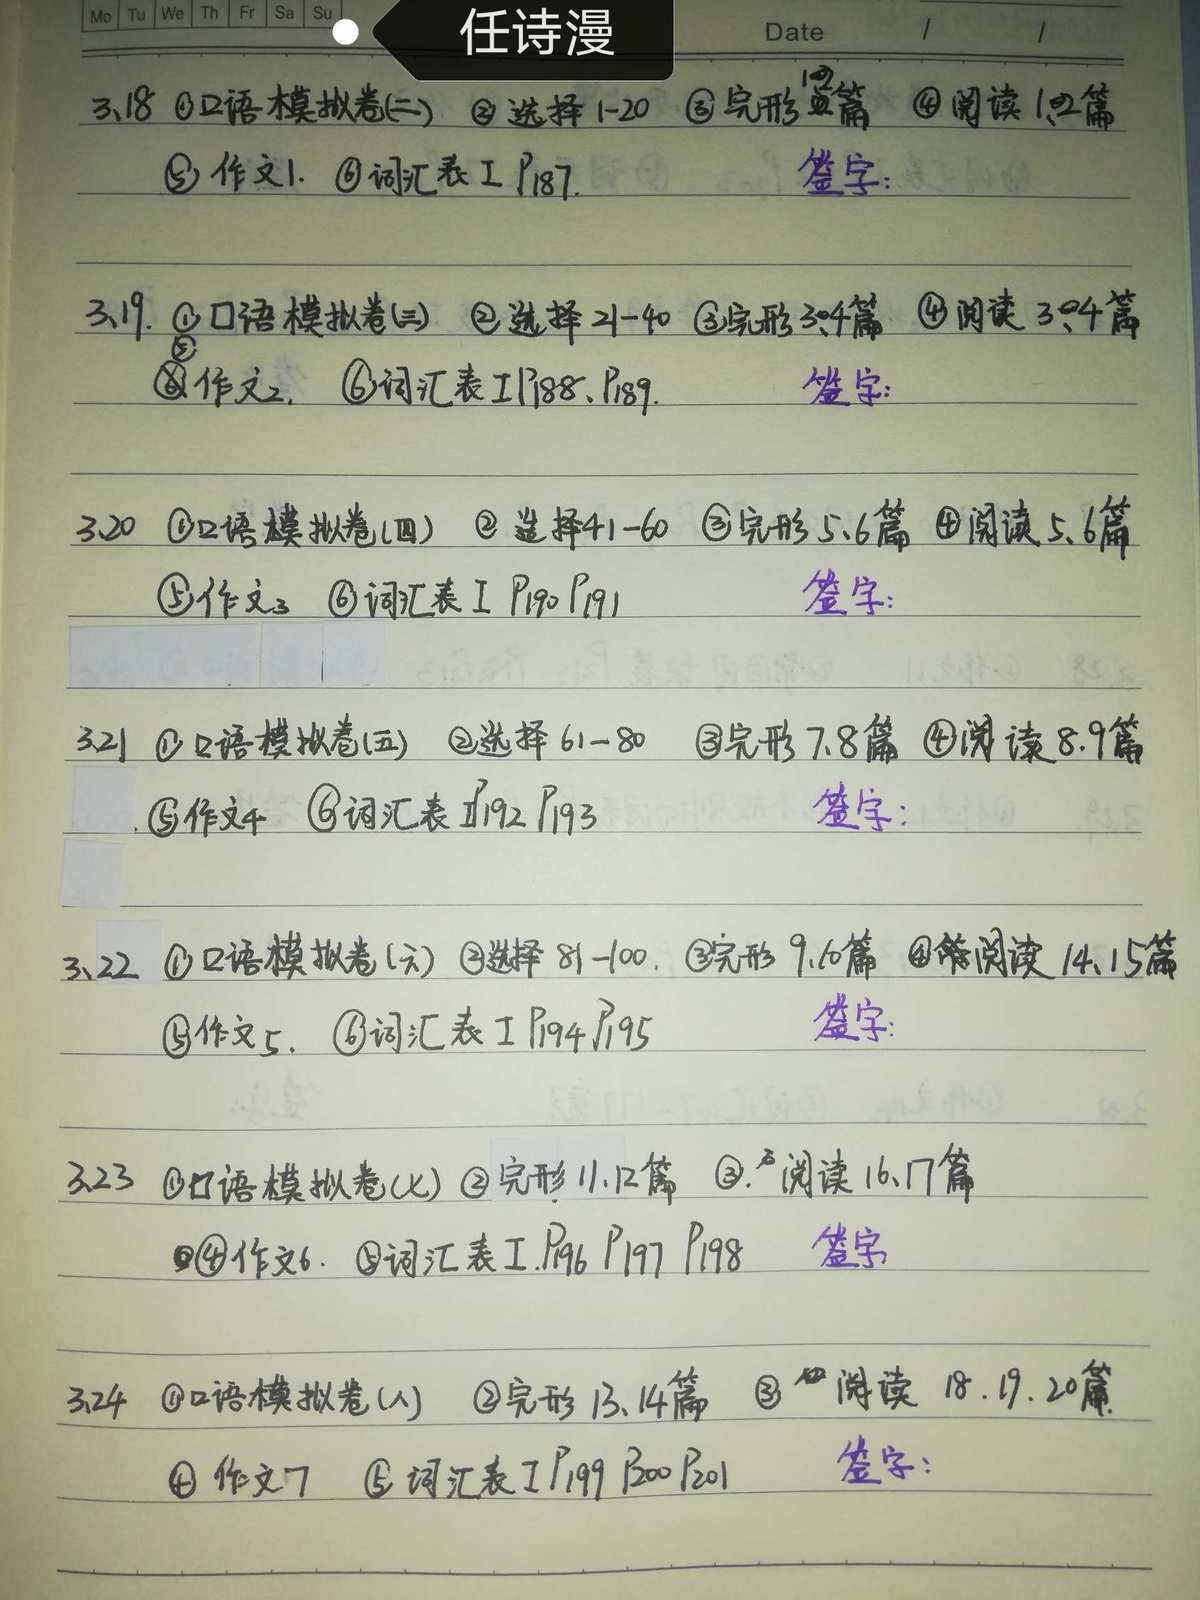 Mo Tu We Th Fr Sa Su
任诗漫
Date / /
3.18 ①口语模拟卷(二) ②选择1-20 ③完形 篇 ④阅读1、2篇
⑤作文1. ⑥词汇表I P187. 签字:
3.19. ①口语模拟卷(三) ②选择21-40 ③完形3、4篇 ④阅读3、4篇
⑤作文2. ⑥词汇表I P188、P189. 签字:
3.20 ①口语模拟卷(四) ②选择41-60 ③完形5、6篇 ④阅读5、6篇
⑤作文3 ⑥词汇表I P190 P191 签字:
3.21 ①口语模拟卷(五) ②选择61-80 ③完形7.8篇 ④阅读8.9篇
⑤作文4 ⑥词汇表I P192 P193 签字:
3.22 ①口语模拟卷(六) ②选择81-100. ③完形9.10篇 ④阅读14、15篇
⑤作文5. ⑥词汇表I P194 P195 签字:
3.23 ①口语模拟卷(七) ②完形11.12篇 ③.阅读16、17篇
④作文6. ⑤词汇表I.P196 P197 P198 签字
3.24 ①口语模拟卷(八) ②完形13、14篇 ③阅读18.19.20篇.
④作文7 ⑤词汇表I P199 P200 P201 签字: